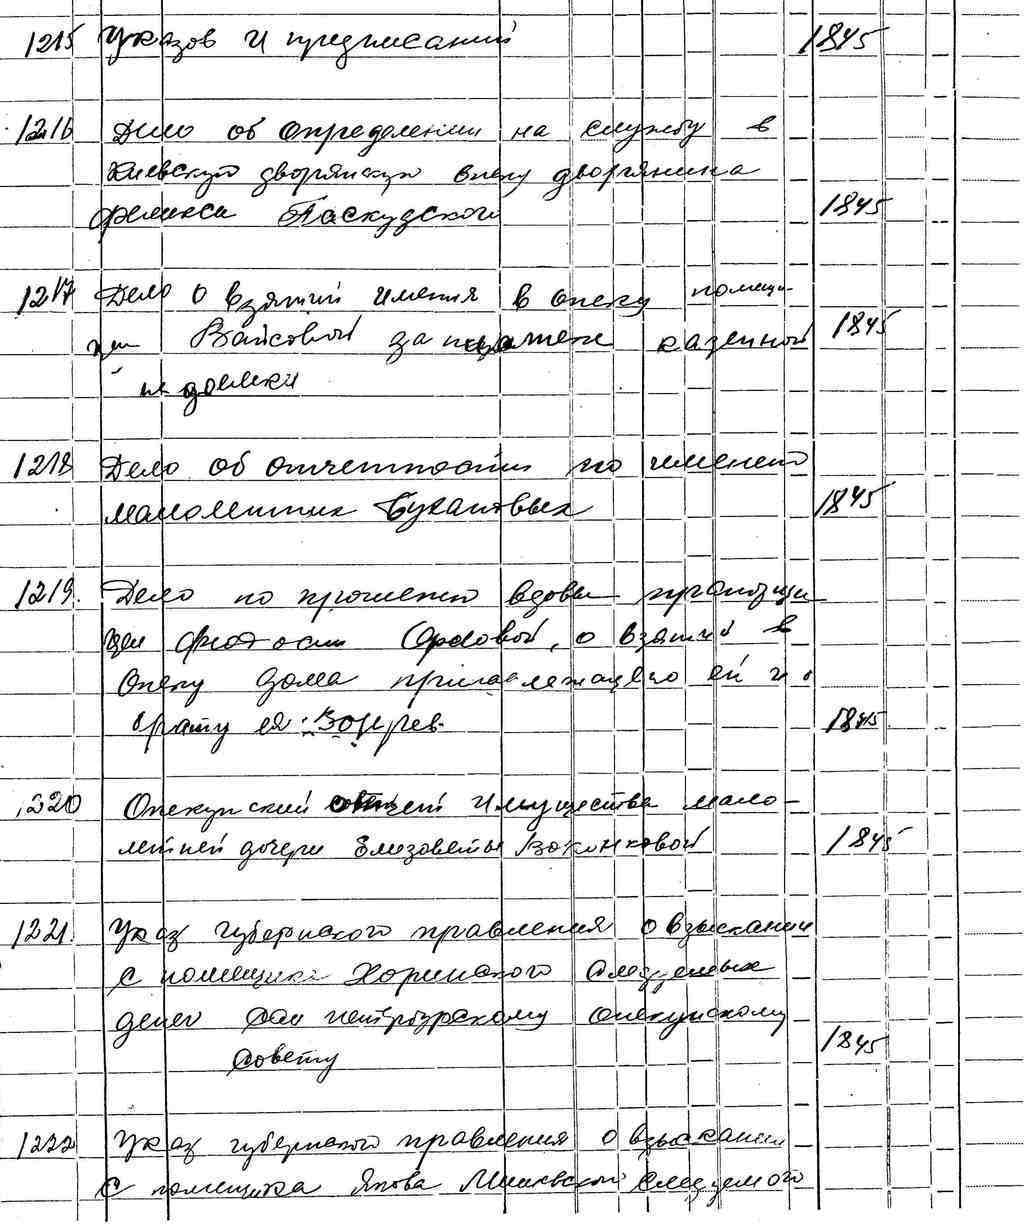 1215 Указов и предписаний 1845
1216 Дело об определении на службу в
Киевскую дворянскую опеку дворянина
Феликса Паскудского 1845
1217 Дело о взятии имения в опеку помещи-
цы Вайсовой за казенной 1845
недоимки
1218 Дело об отчетности по имению
малолетних Букатовых 1845
1219. Дело по прошению вдовы
Орловой, о взятии в
опеку дома принадлежащего ей и
брату ея 1845
1220 Опекунский отчет имущества мало-
летней дочери Елизоветы 1845
1221. Указ губернского правления о взыскании
с помещика Хоринского следуемых
денег опекунскому
совету 1845
1222 Указ губернского правления о взыскании
с помещика Якова следуемого